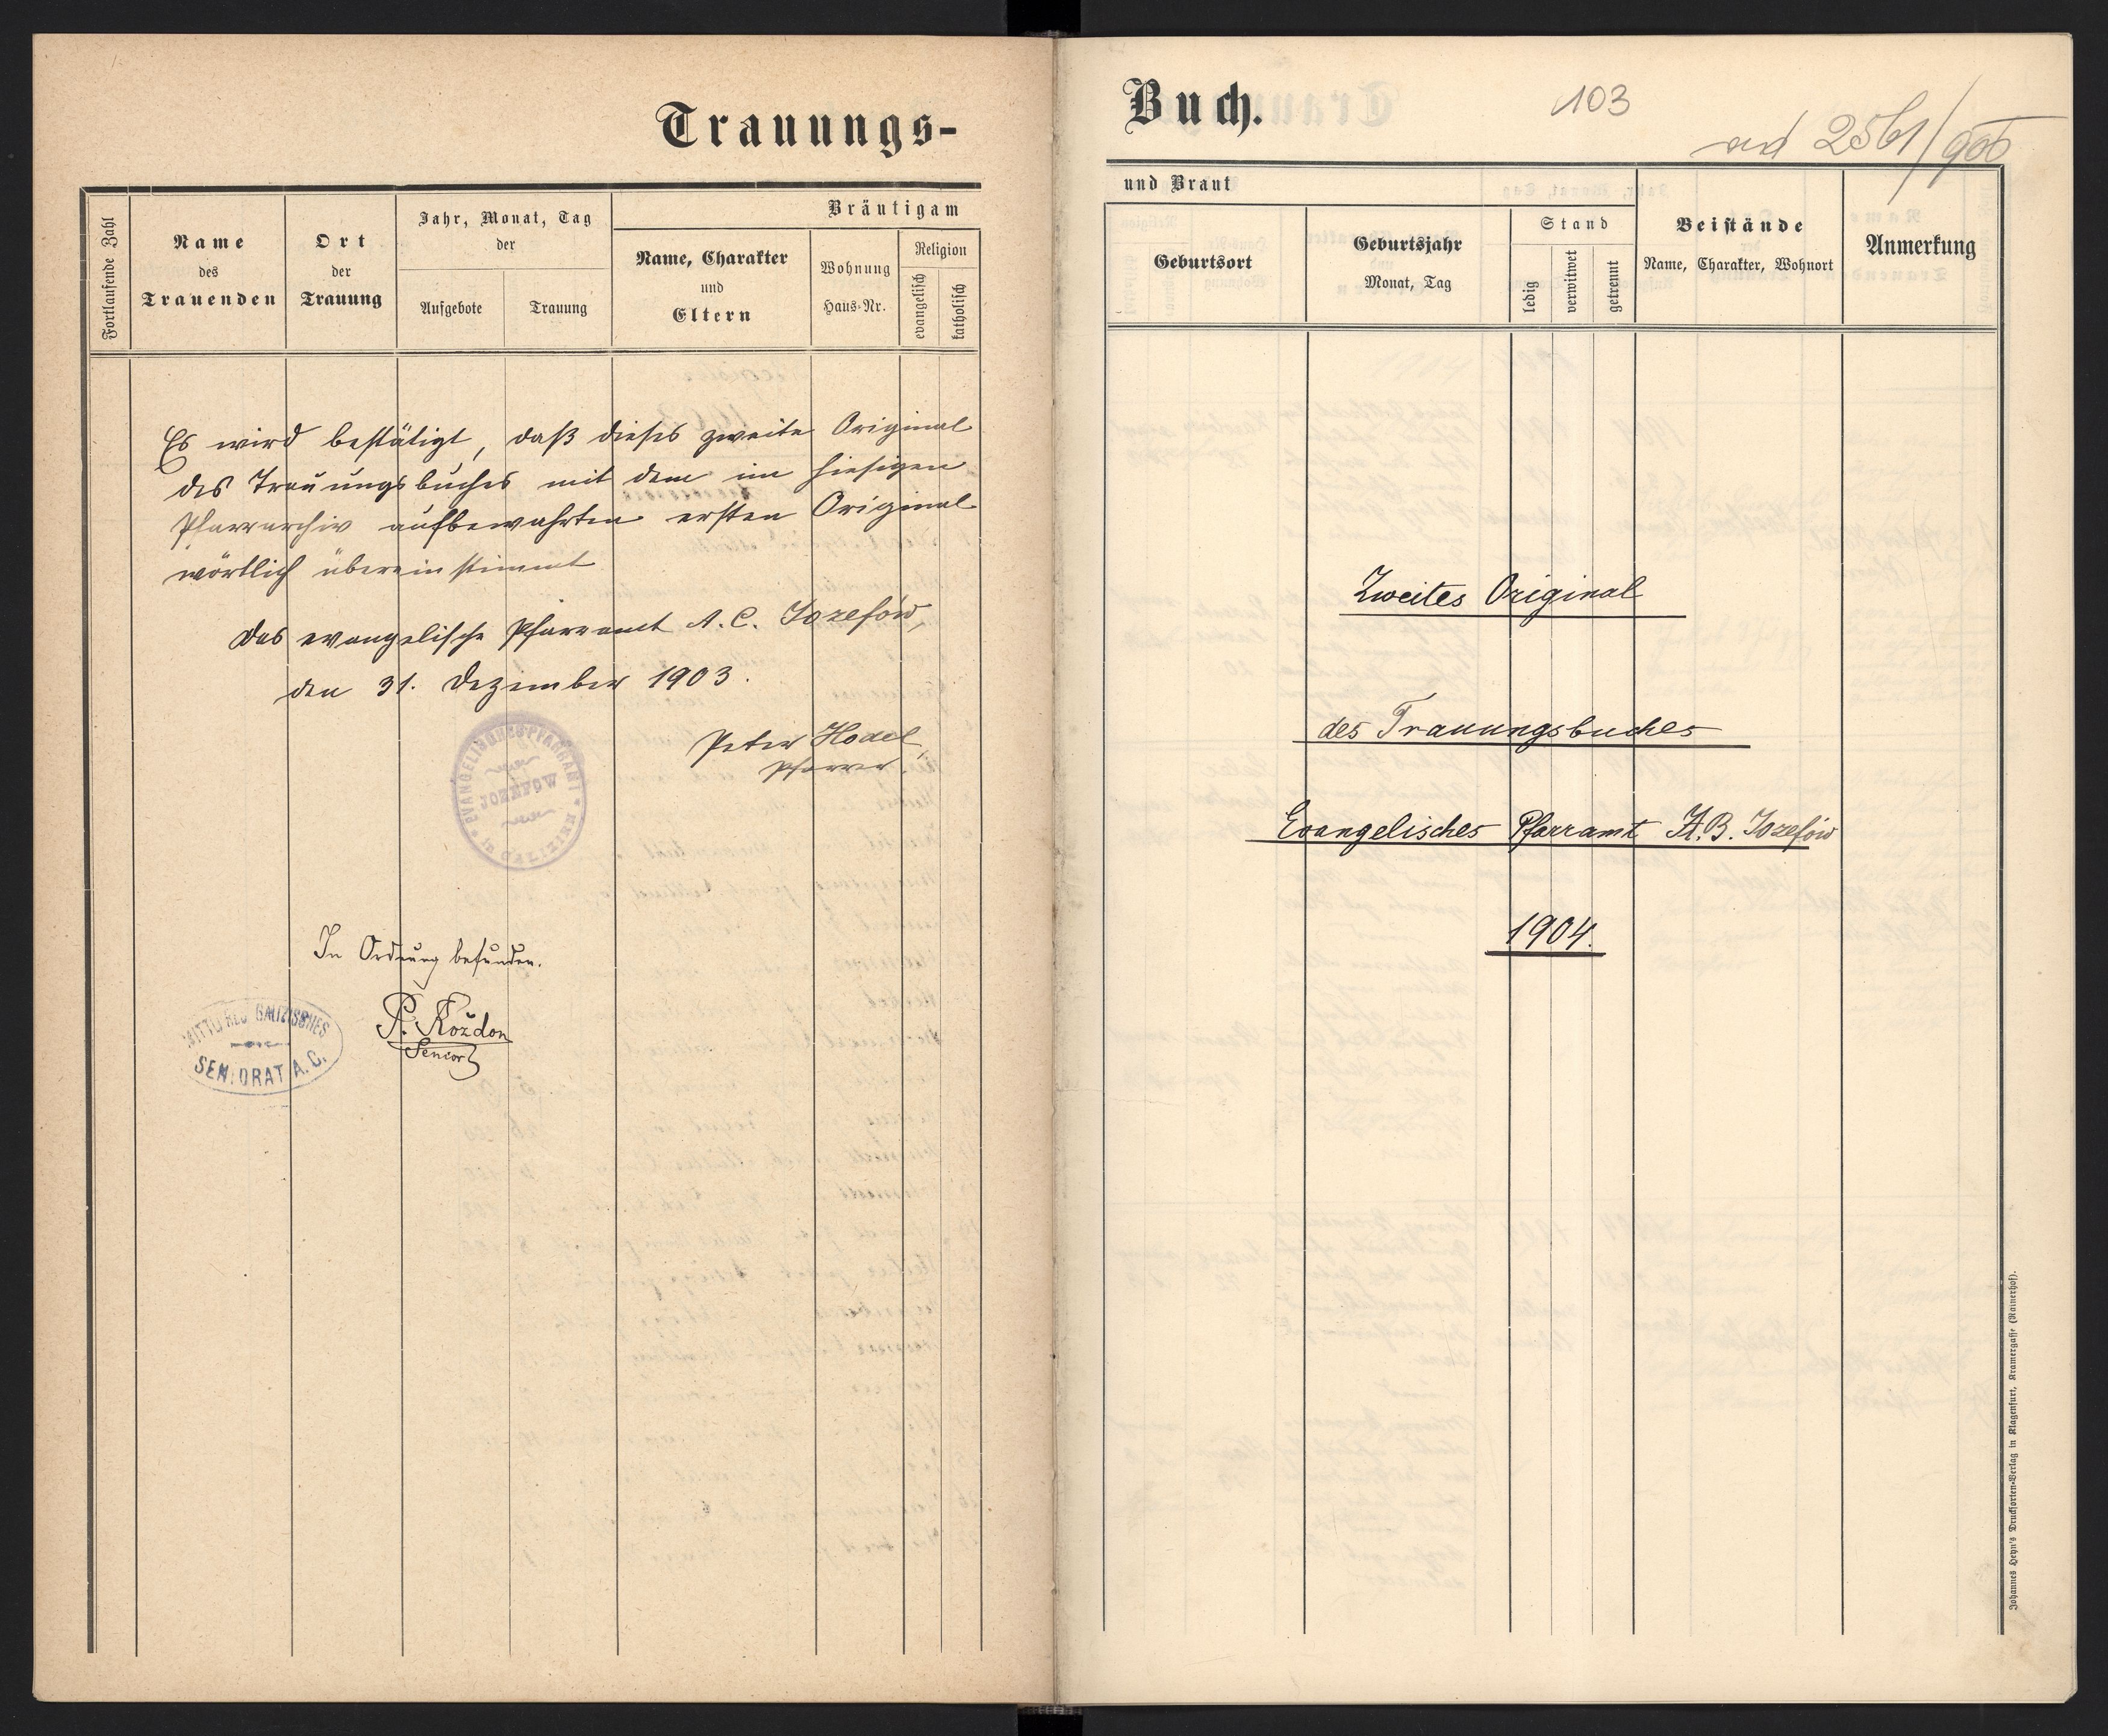 Trauungs-
Fortlaufende Zahl
Name
des
Trauenden
Ort
der
Trauung
Jahr, Monat, Tag
der
Aufgebote
Trauung
Bräutigam
Name, Charakter
und
Eltern
Wohnung
Haus-Nr.
Religion
evangelisch
katholisch
Es wird bestätigt, daß dieses zweite Original
des Trauungsbuches mit dem im hiesigen
Pfarrarchiv aufbewahrten ersten Original
wörtlich übereinstimmt
Das evangelische Pfarramt A. C. Jozefów,
den 31. Dezember 1903.
Peter Hodel,
Pfarrer.
EVANGELISCHES PFARRAMT
JOZEFOW
in GALIZIEN
In Ordnung befunden.
P. Kożdon
Senior
GALIZISCHES
SENIORAT A. C.
Buch.
103
ad 2561/906
und Braut
Geburtsort
Geburtsjahr
Monat, Tag
Stand
ledig
verwitwet
getrennt
Beistände
Name, Charakter, Wohnort
Anmerkung
Zweites Original
des Trauungsbuches
Evangelisches Pfarramt A.B. Jozefów
1904.
Johannes Heyn's Drucksorten-Verlag in Klagenfurt, Kramergasse (Rainerhof).